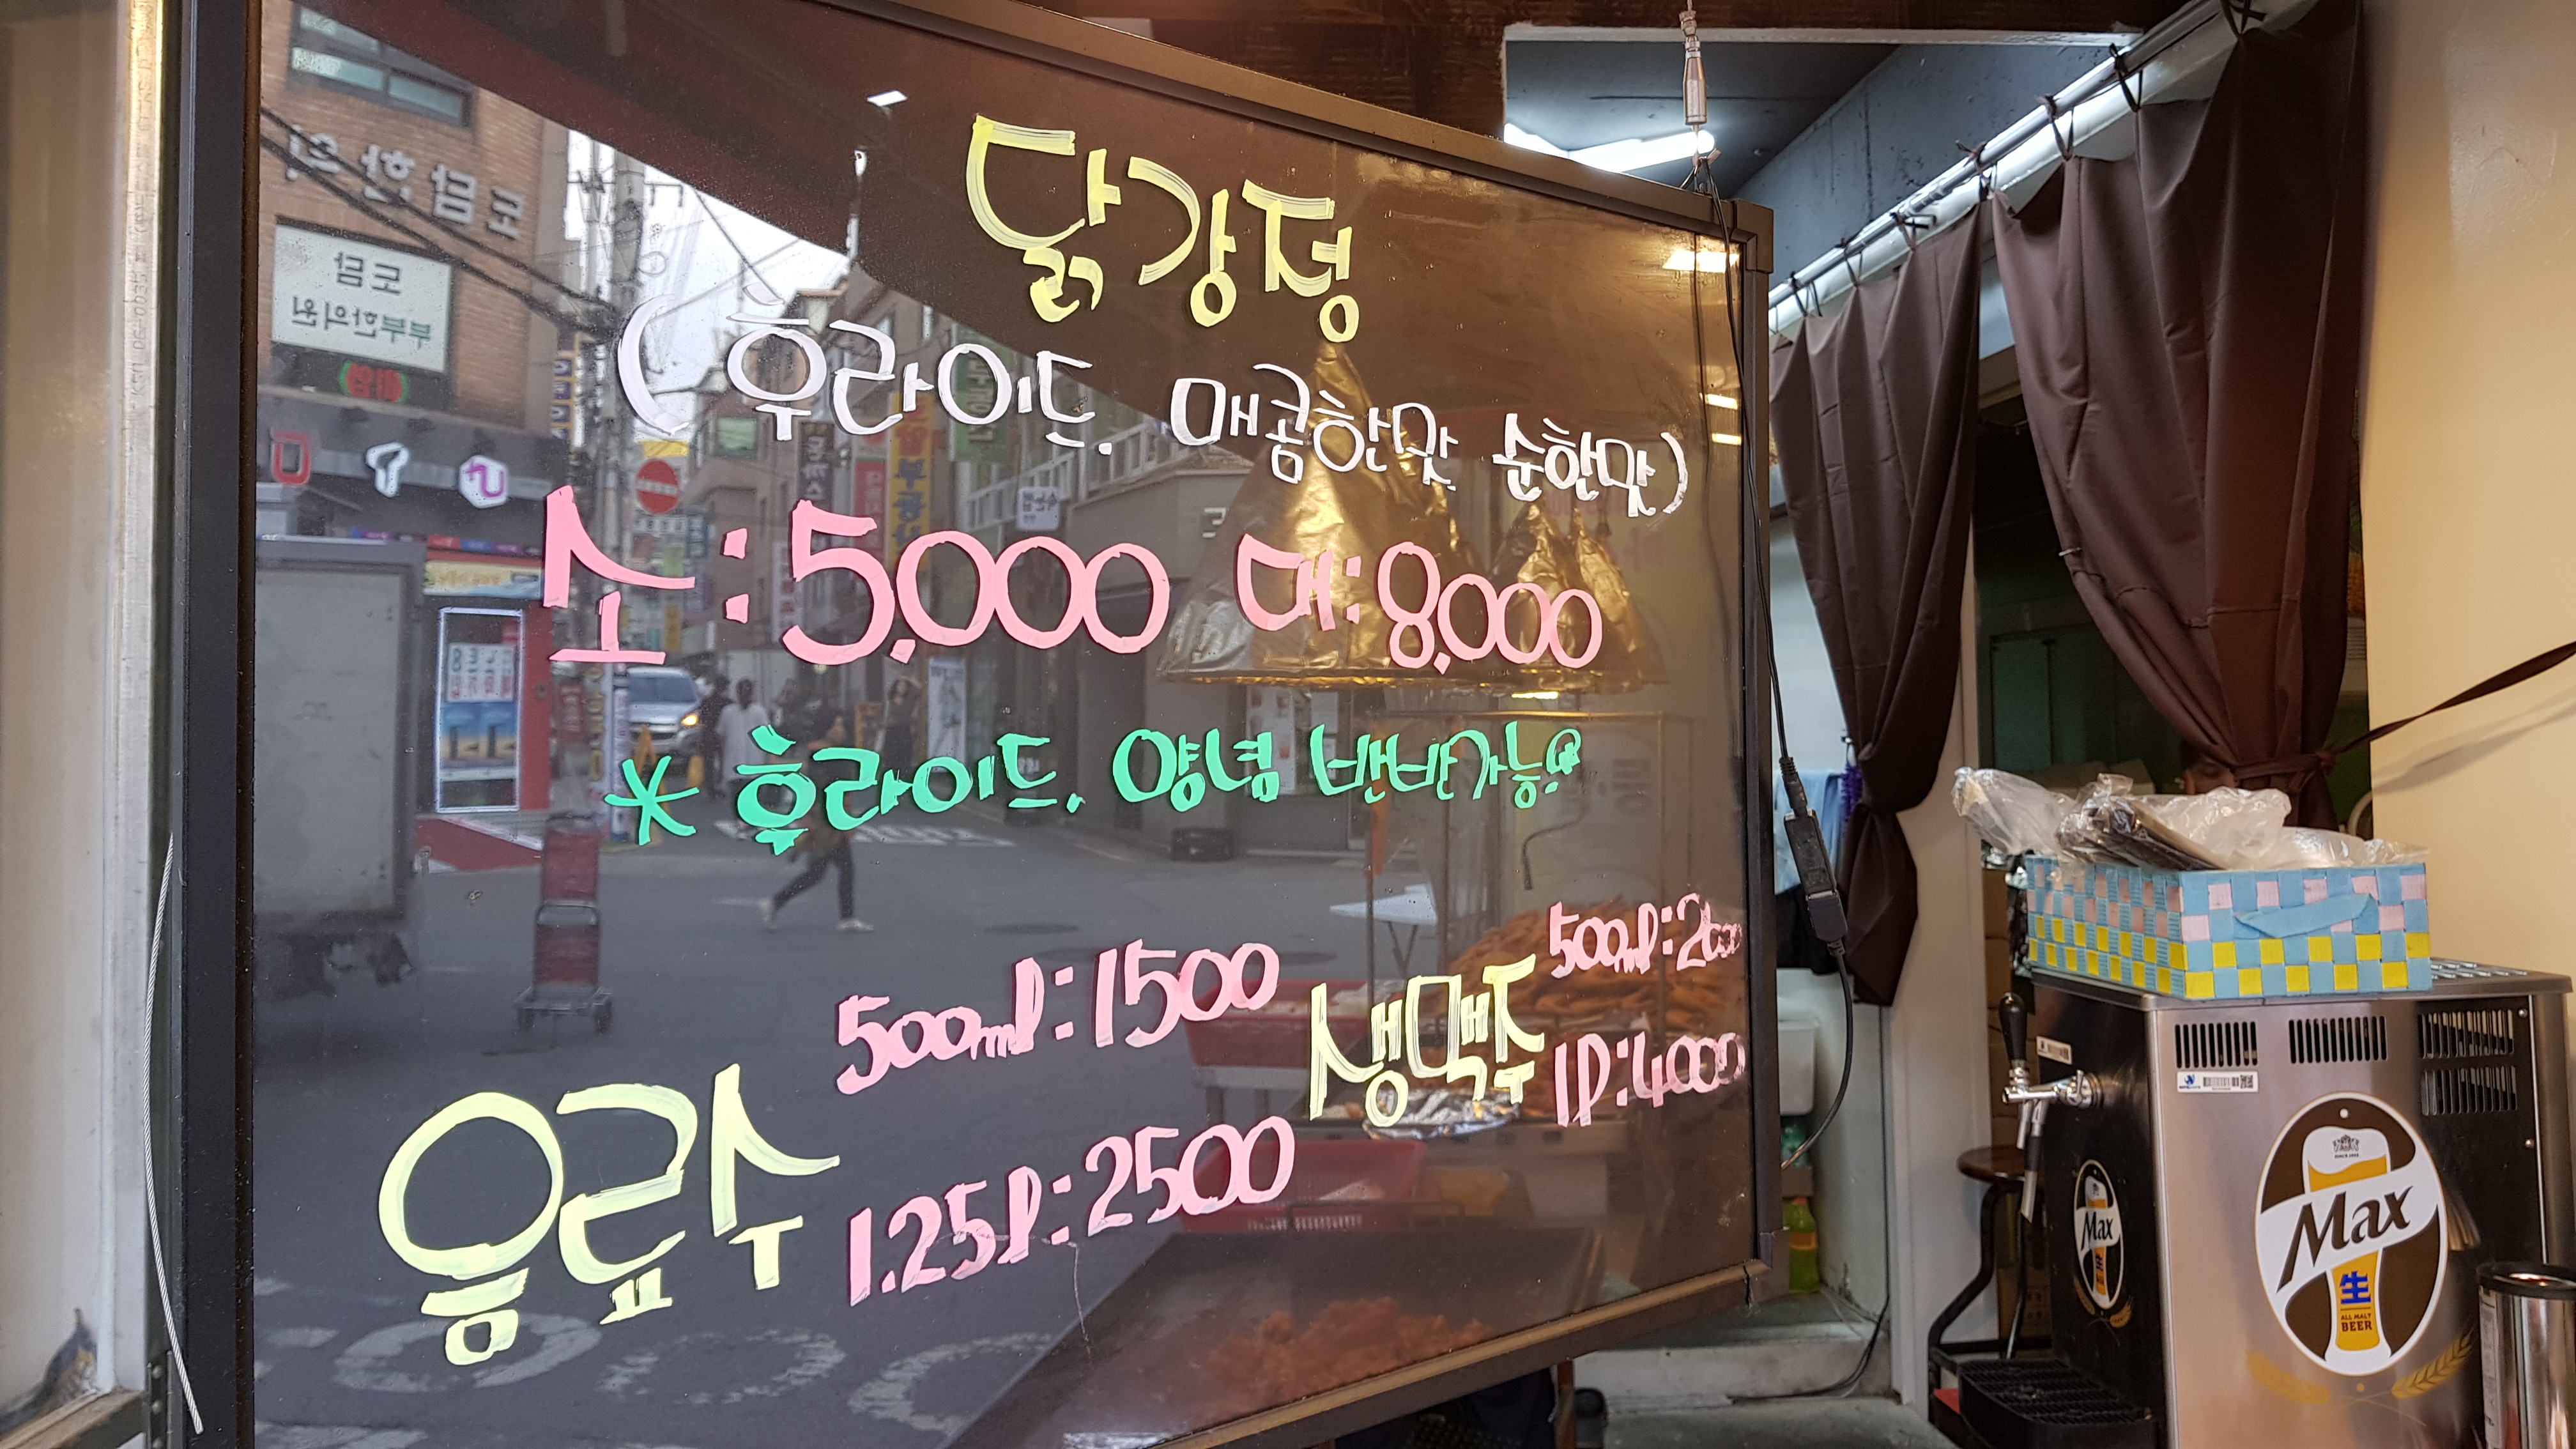 닭강정
(후라이드. 매콤한맛. 순한맛)
소: 5,000 대: 8,000
* 후라이드. 양념 반반가능!
음료수
500ml: 1500
1.25l: 2500
생맥주
500ml: 2000
1l: 4000
도담한의
도담
부부한의원
Max
生
ALL MALT
BEER
Max